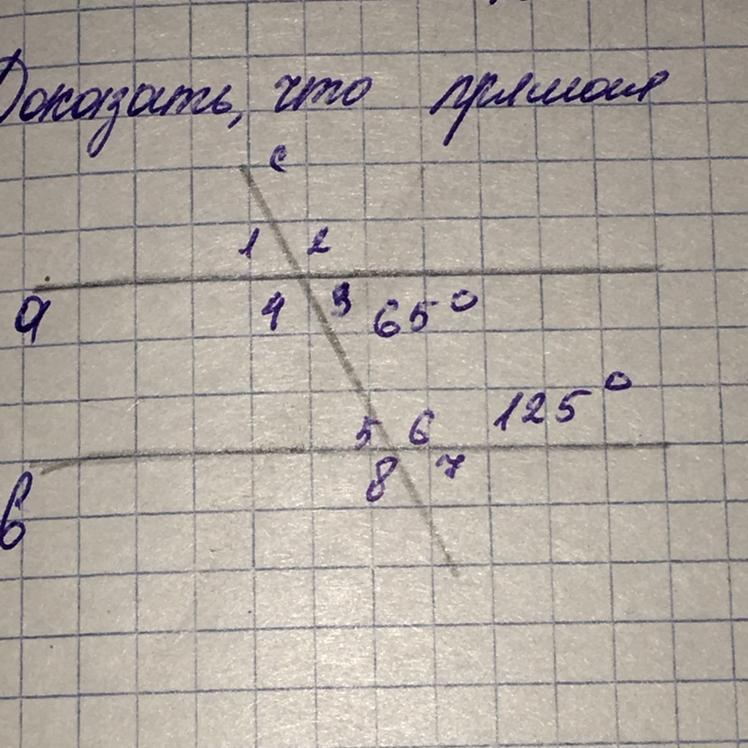 Доказать, что прямая
c
1 2
a 4 3 65°
125°
5 6
8 7
b